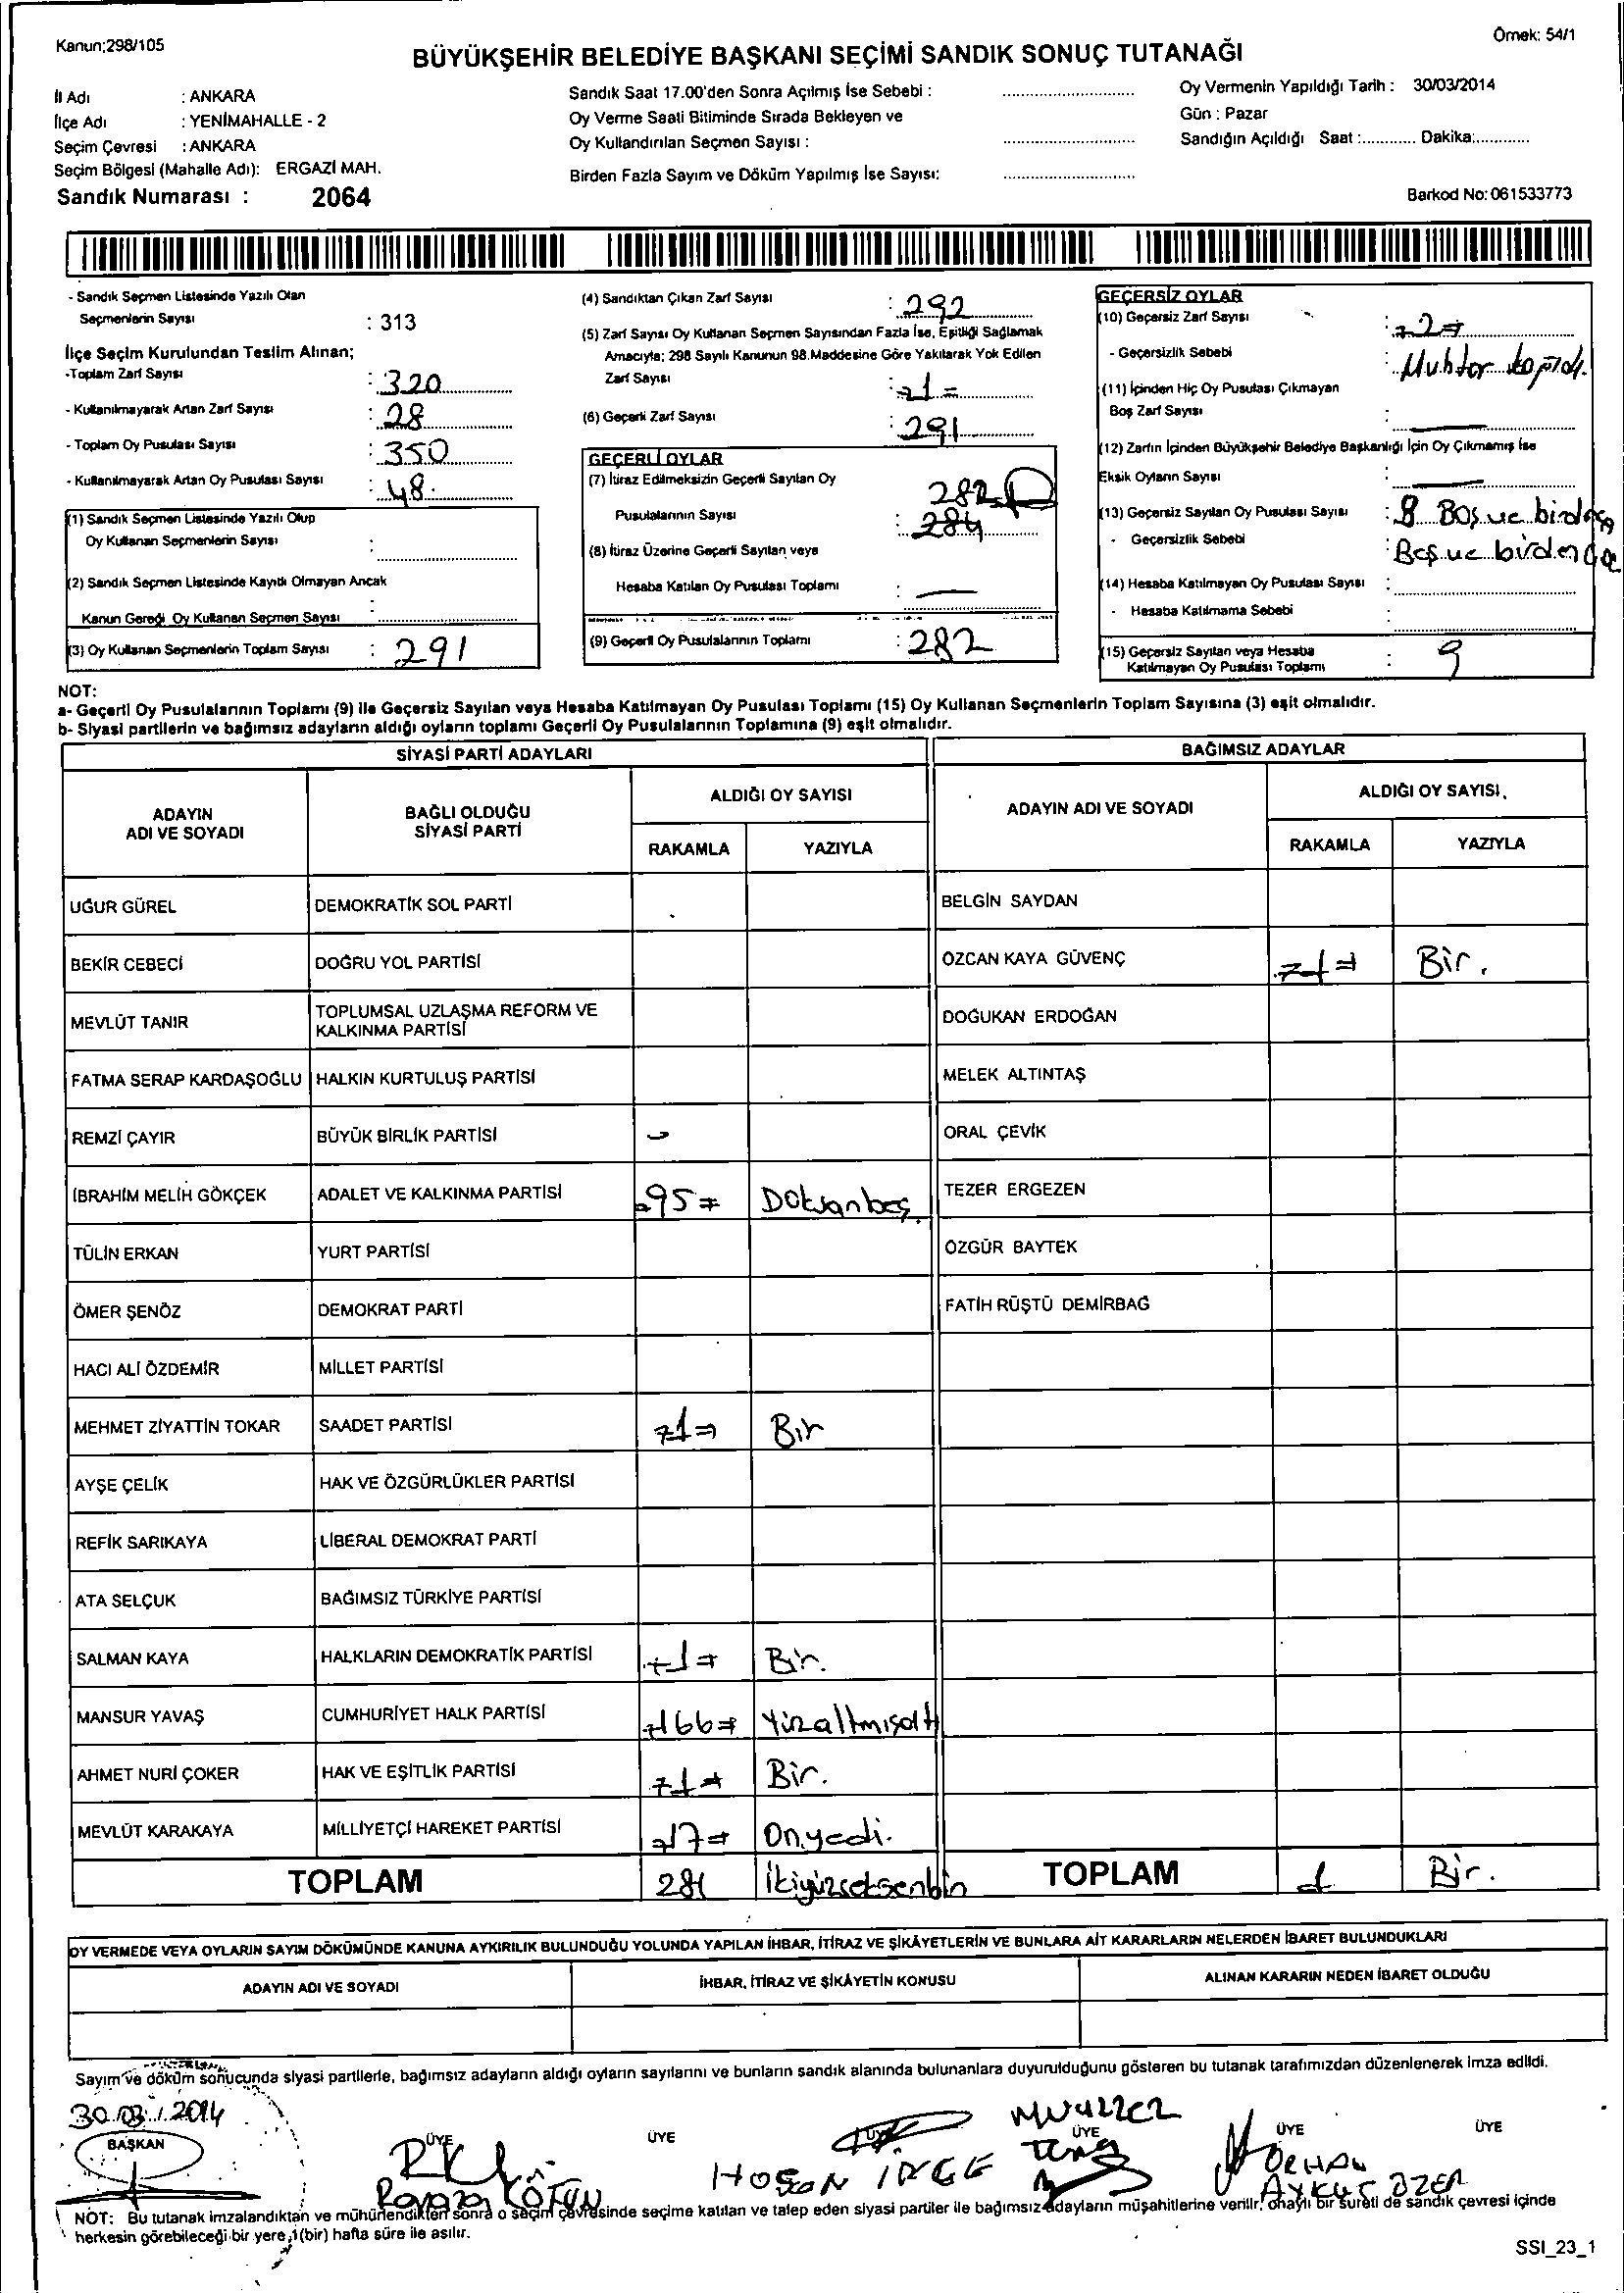 Kanun;298/105
Örnek: 54/1
BÜYÜKŞEHİR BELEDİYE BAŞKANI SEÇİMİ SANDIK SONUÇ TUTANAĞI
İl Adı : ANKARA
İlçe Adı : YENİMAHALLE - 2
Seçim Çevresi : ANKARA
Seçim Bölgesi (Mahalle Adı): ERGAZİ MAH.
Sandık Numarası : 2064
Sandık Saat 17.00'den Sonra Açılmış İse Sebebi :
Oy Verme Saati Bitiminde Sırada Bekleyen ve
Oy Kullandırılan Seçmen Sayısı :
Birden Fazla Sayım ve Döküm Yapılmış İse Sayısı:
Oy Vermenin Yapıldığı Tarih : 30/03/2014
Gün : Pazar
Sandığın Açıldığı Saat :............ Dakika:............
Barkod No: 061533773
- Sandık Seçmen Listesinde Yazılı Olan
Seçmenlerin Sayısı : 313
İlçe Seçim Kurulundan Teslim Alınan;
-Toplam Zarf Sayısı : 320
- Kullanılmayarak Artan Zarf Sayısı : 28
- Toplam Oy Pusulası Sayısı : 350
- Kullanılmayarak Artan Oy Pusulası Sayısı : 48
(1) Sandık Seçmen Listesinde Yazılı Olup
Oy Kullanan Seçmenlerin Sayısı :
(2) Sandık Seçmen Listesinde Kayıtlı Olmayan Ancak
Kanun Gereği Oy Kullanan Seçmen Sayısı :
(3) Oy Kullanan Seçmenlerin Toplam Sayısı : 291
(4) Sandıktan Çıkan Zarf Sayısı : 292
(5) Zarf Sayısı Oy Kullanan Seçmen Sayısından Fazla İse, Eşitliği Sağlamak
Amacıyla; 298 Sayılı Kanunun 98.Maddesine Göre Yakılarak Yok Edilen
Zarf Sayısı : =1=
(6) Geçerli Zarf Sayısı : 291
GEÇERLİ OYLAR
(7) İtiraz Edilmeksizin Geçerli Sayılan Oy 282
Pusulalarının Sayısı : 284
(8) İtiraz Üzerine Geçerli Sayılan veya
Hesaba Katılan Oy Pusulası Toplamı : —
(9) Geçerli Oy Pusulalarının Toplamı : 282
GEÇERSİZ OYLAR
(10) Geçersiz Zarf Sayısı : =2=
- Geçersizlik Sebebi : Muhtar
(11) İçinden Hiç Oy Pusulası Çıkmayan
Boş Zarf Sayısı : —
(12) Zarfın İçinden Büyükşehir Belediye Başkanlığı İçin Oy Çıkmamış İse
Eksik Oyların Sayısı : —
(13) Geçersiz Sayılan Oy Pusulası Sayısı : 8 Boş ve birden
- Geçersizlik Sebebi : Boş ve birden
(14) Hesaba Katılmayan Oy Pusulası Sayısı :
- Hesaba Katılmama Sebebi :
(15) Geçersiz Sayılan veya Hesaba
Katılmayan Oy Pusulası Toplamı : 9
NOT:
a- Geçerli Oy Pusulalarının Toplamı (9) ile Geçersiz Sayılan veya Hesaba Katılmayan Oy Pusulası Toplamı (15) Oy Kullanan Seçmenlerin Toplam Sayısına (3) eşit olmalıdır.
b- Siyasi partilerin ve bağımsız adayların aldığı oyların toplamı Geçerli Oy Pusulalarının Toplamına (9) eşit olmalıdır.
SİYASİ PARTİ ADAYLARI
ADAYIN ADI VE SOYADI BAĞLI OLDUĞU SİYASİ PARTİ ALDIĞI OY SAYISI
RAKAMLA YAZIYLA
UĞUR GÜREL DEMOKRATİK SOL PARTİ
BEKİR CEBECİ DOĞRU YOL PARTİSİ
MEVLÜT TANIR TOPLUMSAL UZLAŞMA REFORM VE KALKINMA PARTİSİ
FATMA SERAP KARDAŞOĞLU HALKIN KURTULUŞ PARTİSİ
REMZİ ÇAYIR BÜYÜK BİRLİK PARTİSİ -
İBRAHİM MELİH GÖKÇEK ADALET VE KALKINMA PARTİSİ =95= Doksanbeş
TÜLİN ERKAN YURT PARTİSİ
ÖMER ŞENÖZ DEMOKRAT PARTİ
HACI ALİ ÖZDEMİR MİLLET PARTİSİ
MEHMET ZİYATTİN TOKAR SAADET PARTİSİ =1= Bir
AYŞE ÇELİK HAK VE ÖZGÜRLÜKLER PARTİSİ
REFİK SARIKAYA LİBERAL DEMOKRAT PARTİ
ATA SELÇUK BAĞIMSIZ TÜRKİYE PARTİSİ
SALMAN KAYA HALKLARIN DEMOKRATİK PARTİSİ =1= Bir.
MANSUR YAVAŞ CUMHURİYET HALK PARTİSİ =166= Yüzaltmışaltı
AHMET NURİ ÇOKER HAK VE EŞİTLİK PARTİSİ =1= Bir.
MEVLÜT KARAKAYA MİLLİYETÇİ HAREKET PARTİSİ =17= Onyedi.
TOPLAM 281 İkiyüzseksenbir
BAĞIMSIZ ADAYLAR
ADAYIN ADI VE SOYADI ALDIĞI OY SAYISI
RAKAMLA YAZIYLA
BELGİN SAYDAN
ÖZCAN KAYA GÜVENÇ =1= Bir.
DOĞUKAN ERDOĞAN
MELEK ALTINTAŞ
ORAL ÇEVİK
TEZER ERGEZEN
ÖZGÜR BAYTEK
FATİH RÜŞTÜ DEMİRBAĞ
TOPLAM 1 Bir.
OY VERMEDE VEYA OYLARIN SAYIM DÖKÜMÜNDE KANUNA AYKIRILIK BULUNDUĞU YOLUNDA YAPILAN İHBAR, İTİRAZ VE ŞİKÂYETLERİN VE BUNLARA AİT KARARLARIN NELERDEN İBARET BULUNDUKLARI
ADAYIN ADI VE SOYADI İHBAR, İTİRAZ VE ŞİKÂYETİN KONUSU ALINAN KARARIN NEDEN İBARET OLDUĞU
Sayım ve döküm sonucunda siyasi partilerle, bağımsız adayların aldığı oyların sayılarını ve bunların sandık alanında bulunanlara duyurulduğunu gösteren bu tutanak tarafımızdan düzenlenerek imza edildi.
30.03.2014
BAŞKAN ÜYE ÜYE ÜYE ÜYE ÜYE ÜYE
ORHAN
AYKUT ÖZER
NOT: Bu tutanak imzalandıktan ve mühürlendikten sonra o seçim çevresinde seçime katılan ve talep eden siyasi partiler ile bağımsız adayların müşahitlerine verilir, onaylı bir sureti de sandık çevresi içinde
herkesin görebileceği bir yere,1(bir) hafta süre ile asılır.
SSI_23_1